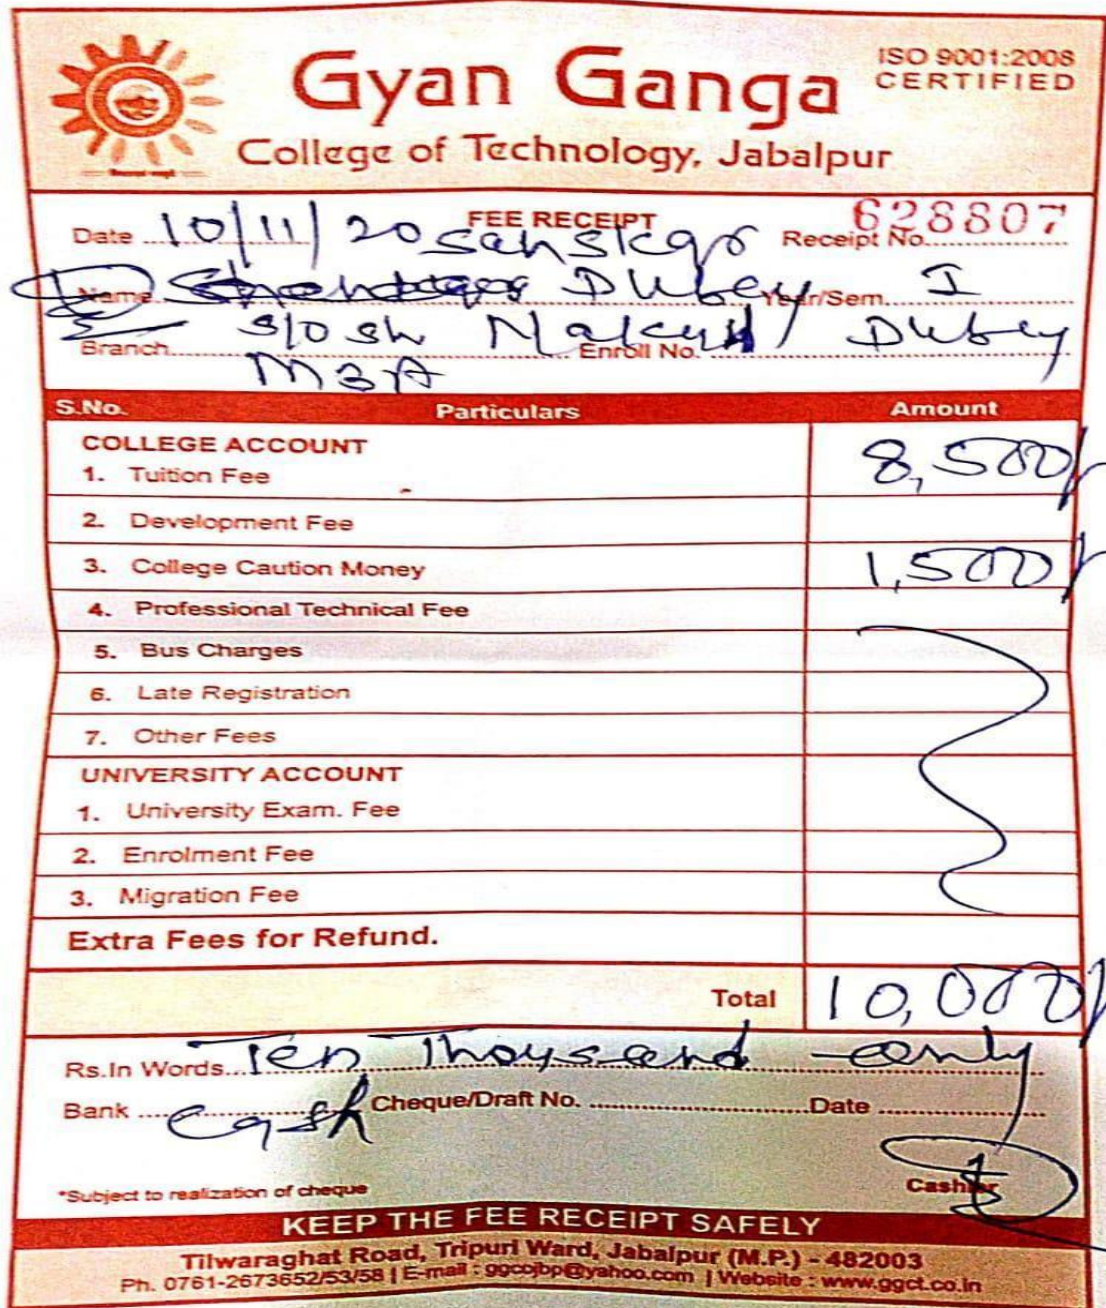 Gyan Ganga
ISO 9001:2008
CERTIFIED
College of Technology, Jabalpur
FEE RECEIPT
628807
Date 10/11/20 Receipt No.
Sanskar
Name Dubey Year/Sem. I
S/o Sh Nakul Dubey
Branch Enroll No.
MBA
S.No. Particulars Amount
COLLEGE ACCOUNT
1. Tuition Fee 8,500/-
2. Development Fee
3. College Caution Money 1,500/-
4. Professional Technical Fee
5. Bus Charges
6. Late Registration
7. Other Fees
UNIVERSITY ACCOUNT
1. University Exam. Fee
2. Enrolment Fee
3. Migration Fee
Extra Fees for Refund.
Total 10,000/-
Rs.In Words Ten Thousand only
Bank Cash Cheque/Draft No. Date
*Subject to realization of cheque Cashier
KEEP THE FEE RECEIPT SAFELY
Tilwaraghat Road, Tripuri Ward, Jabalpur (M.P.) - 482003
Ph. 0761-2673652/53/58 | E-mail : ggcojbp@yahoo.com | Website : www.ggct.co.in